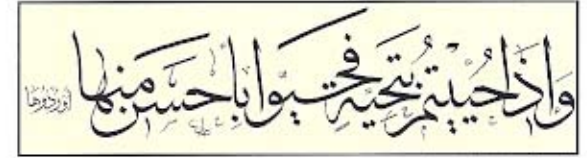 وَإِذَا حُيِّيتُم بِتَحِيَّةٍ فَحَيُّوا بِأَحْسَنَ مِنْهَا أَوْ رُدُّوهَا